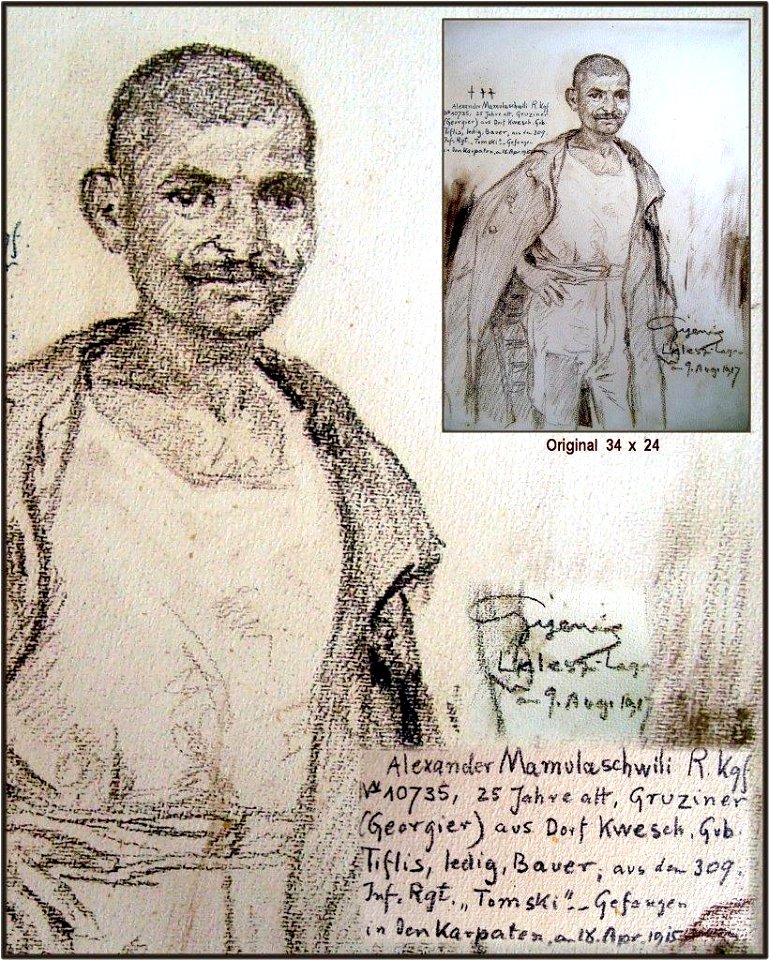 Alexander Mamulaschwili R. Kgf
№ 10735, 25 Jahre alt, Gruziner
(Georgier) aus Dorf Kwesch, Gub.
Tiflis, ledig, Bauer, aus den 309.
Inf. Rgt. „Tomski“ - Gefangen
in den Karpaten, am 18. Apr. 1915
Original 34 x 24
Lager
am 9. Aug. 1917
Lager
am 9. Aug. 1917
Alexander Mamulaschwili R. Kgf
№ 10735, 25 Jahre alt, Gruziner
(Georgier) aus Dorf Kwesch, Gub.
Tiflis, ledig, Bauer, aus den 309.
Inf. Rgt. „Tomski“ - Gefangen
in den Karpaten, am 18. Apr. 1915